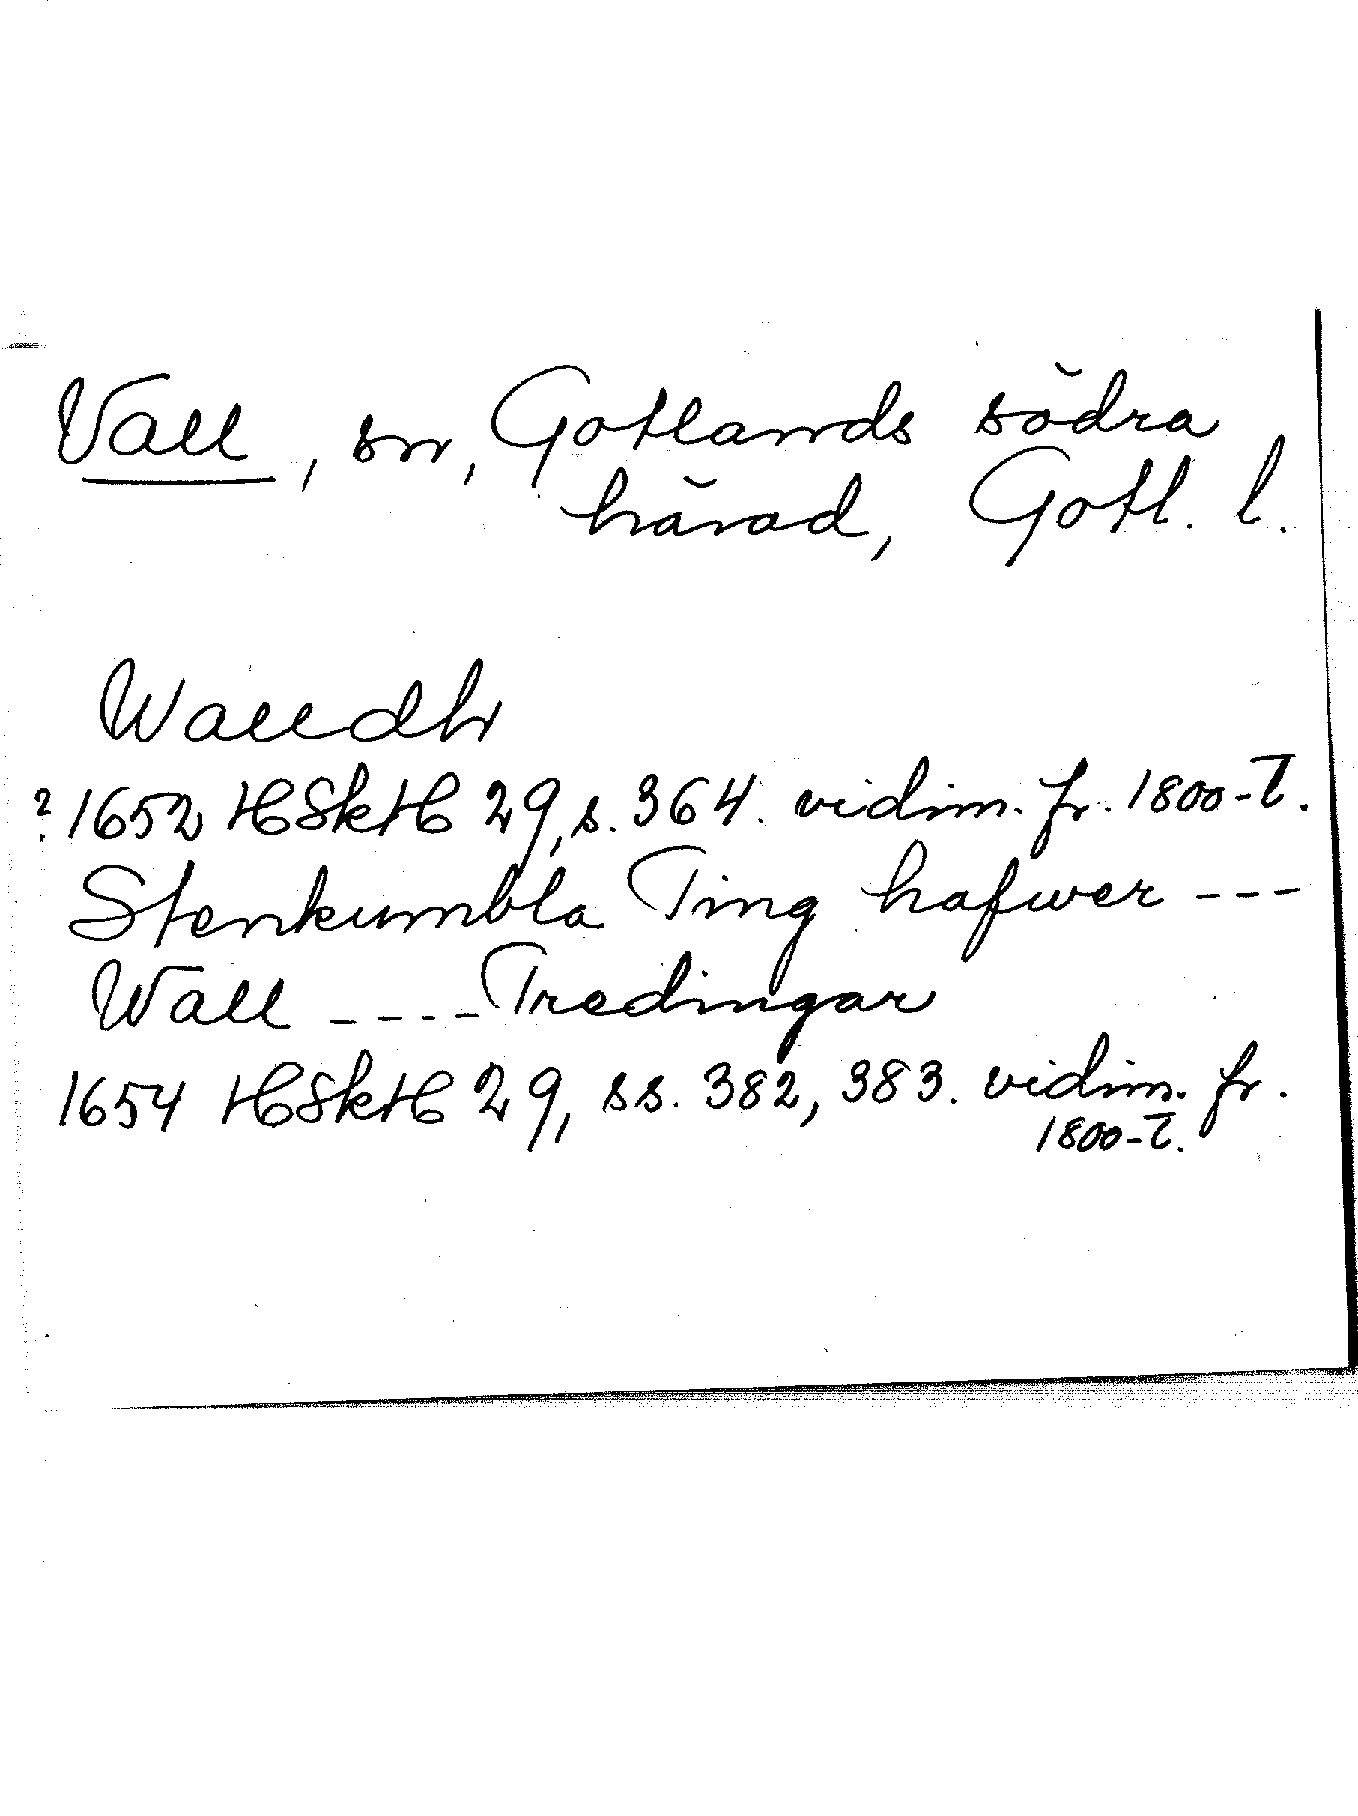 Vall, sn, Gotlands södra
härad, Gotl. l.
Walldh
? 1652 HSkH 29, s. 364. vidim. fr. 1800-T.
Stenkumbla Ting hafwer ---
Wall ---- Tredingar
1654 HSkH 29, ss. 382, 383. vidim. fr.
1800-T.